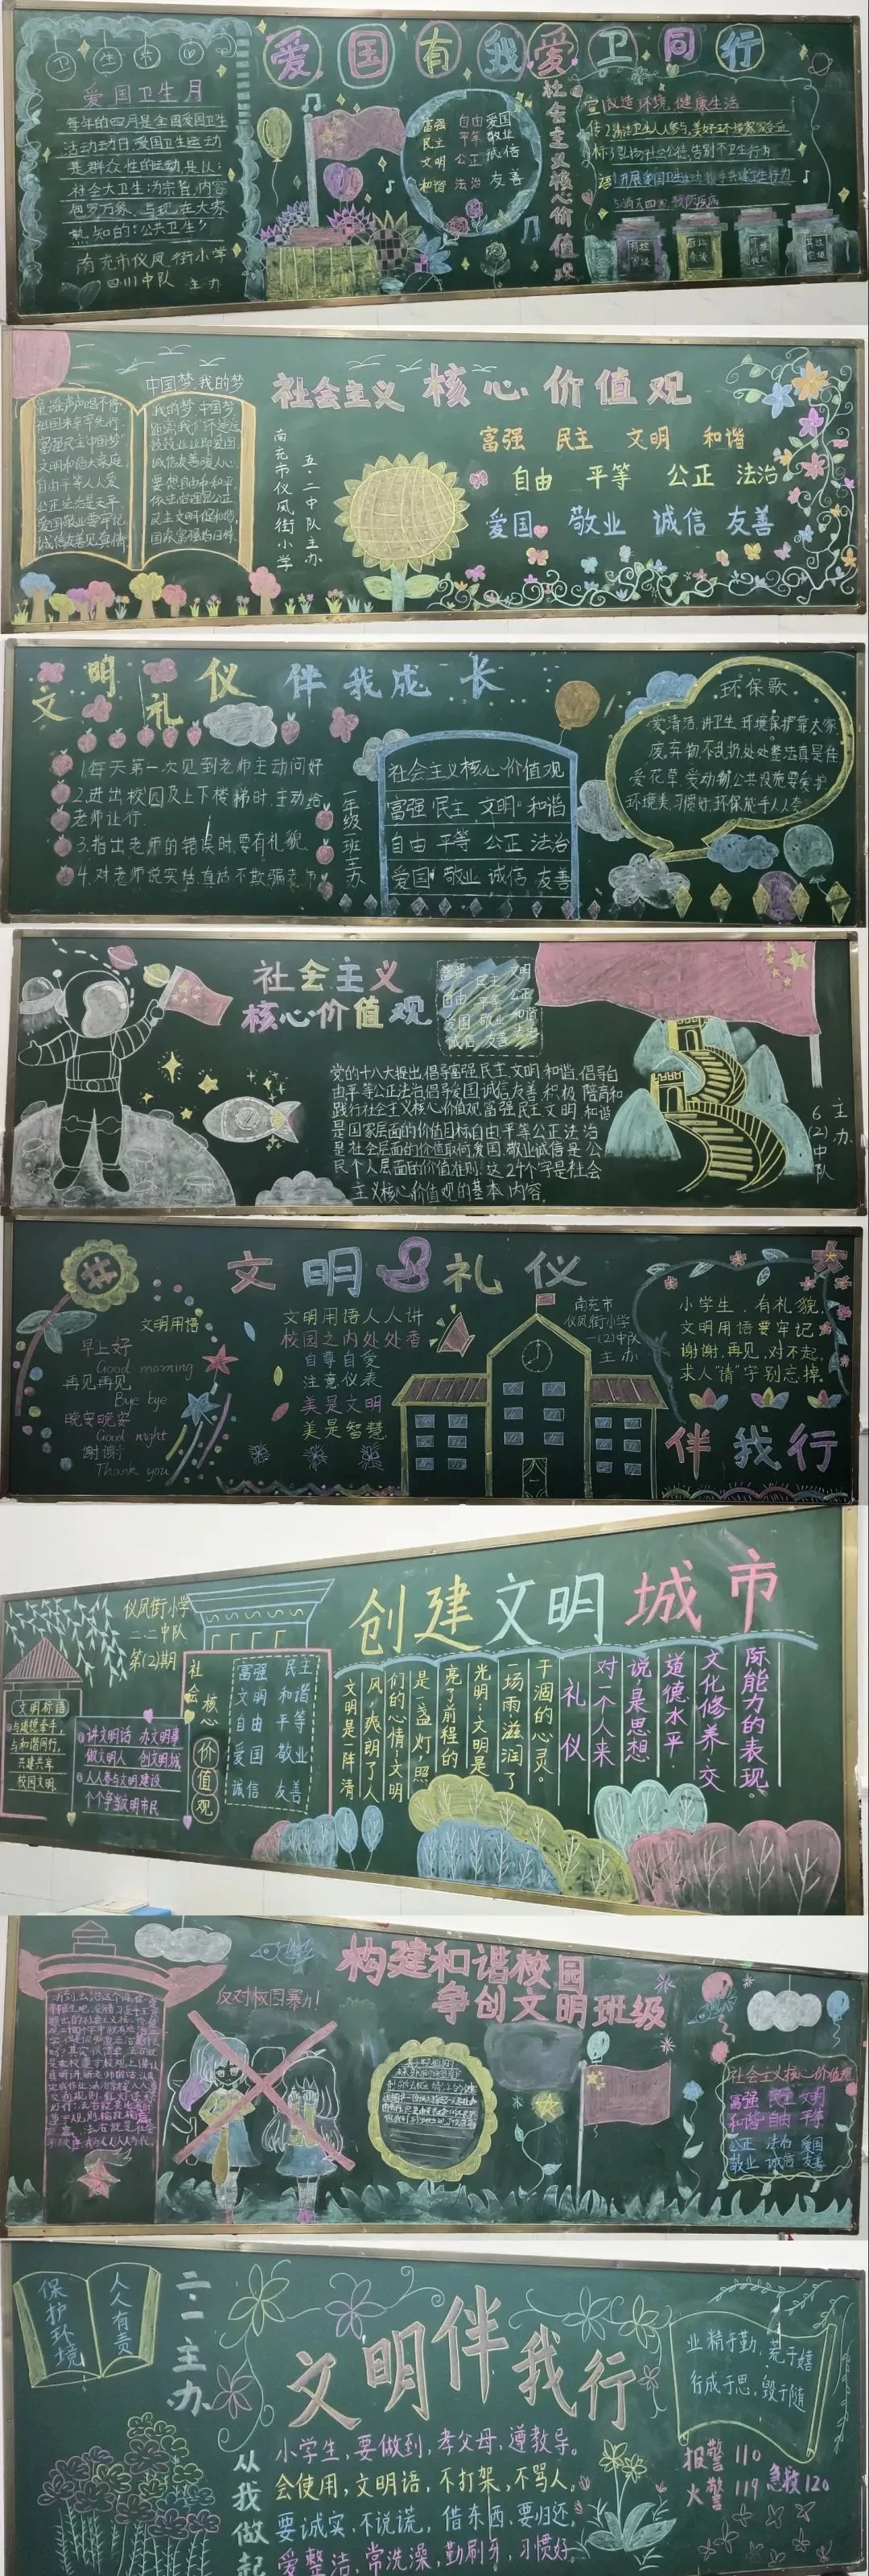 卫生节
爱国有我 爱卫同行
爱国卫生月
每年的四月是全国爱国卫生
活动动日,爱国卫生运动
是群众性的运动,是以:
社会大卫生:为宗旨,内容
包罗万象,与现在大家
熟知的:公共卫生"
南充市仪凤街小学
四川中队 主办
富强 自由 爱国
民主 平等 敬业
文明 公正 诚信
和谐 法治 友善
社会主义核心价值观
宣传标语
1改造环境,健康生活
3弘扬社会公德,告别不卫生行为
中国梦,我的梦
童谣声声唱不停
祖国未来
富强民主中国梦
文明和谐大家庭
自由平等人人爱
公正法治是天平
爱国敬业要牢记
诚信友善见真情
我的梦 中国梦
距离我们不遥远
兢兢业业即爱国
诚信友善暖人心
要想自由和和平
依法治理是公正
民主文明促和谐
国家富强指日待
南充市仪凤街小学
五·二中队主办
社会主义 核心价值观
富强 民主 文明 和谐
自由 平等 公正 法治
爱国 敬业 诚信 友善
文明礼仪 伴我成长
1.每天第一次见到老师主动问好
2.进出校园及上下楼梯时,主动给
老师让行.
3.指出老师的错误时,要有礼貌
4.对老师说实话,真话不欺骗老师
一年级一班主办
社会主义核心价值观
富强 民主 文明 和谐
自由 平等 公正 法治
爱国 敬业 诚信 友善
环保歌
爱清洁,讲卫生,环境保护靠大家
废弃物,不乱扔处处整洁真是佳
爱花草,爱动物,公共设施要爱护
环境美,习惯好,环保能手人人夸
社会主义
核心价值观
富强 民主 文明
自由 平等 公正
爱国 敬业 和谐
诚信 友善 法治
党的十八大提出,倡导富强,民主,文明,和谐,倡导自
由平等公正法治倡导爱国,诚信友善,积极 陪育和
践行社会主义核心价值观,富强,民主 文明 和谐
是国家层面的价值目标,自由,平等公正 法治
是社会层面的价值取向,爱国,敬业诚信是公
民个人层面的价值准则,这24个字是社会
主义核心价值观的基本内容.
6(2)中队
主办
文明礼仪
文明用语
早上好
Good morning
再见再见
Bye bye
晚安晚安
Good night
谢谢
Thank you
文明用语人人讲
校园之内处处香
自尊自爱
注意仪表
美是文明
美是智慧
南充市
仪凤街小学
一(2)中队
主办
小学生,有礼貌,
文明用语要牢记
谢谢,再见,对不起,
求人"请"字别忘掉.
伴我行
仪凤街小学
二.二中队
第(2)期
创建文明城市
文明标语
与道德牵手,
与和谐同行,
共建共享
校园文明.
讲文明话 办文明事
做文明人 创文明城
人人参与文明建设
个个争当文明市民
社会核心价值观
富强 民主
文明 和谐
自由 平等
爱国 敬业
诚信 友善
文明是一阵清
风,爽朗了人
们的心情;文明
是一盏灯,照
亮了前程的
光明;文明是
一场雨滋润了
干涸的心灵。
礼仪
对一个人来
说,是思想
道德水平,
文化修养,交
际能力的表现。
构建和谐校园
争创文明班级
反对校园暴力!
社会主义核心价值观
富强 民主 文明
和谐 自由 平等
公正 法治 爱国
敬业 诚信 友善
保护环境
人人有责
二·一主办
文明伴我行
从我做起
小学生,要做到,孝父母,遵教导。
会使用,文明语,不打架,不骂人。
要诚实,不说谎,借东西,要归还,
爱整洁,常洗澡,勤刷牙,习惯好
业精于勤,荒于嬉
行成于思,毁于随
报警 110
火警 119 急救120